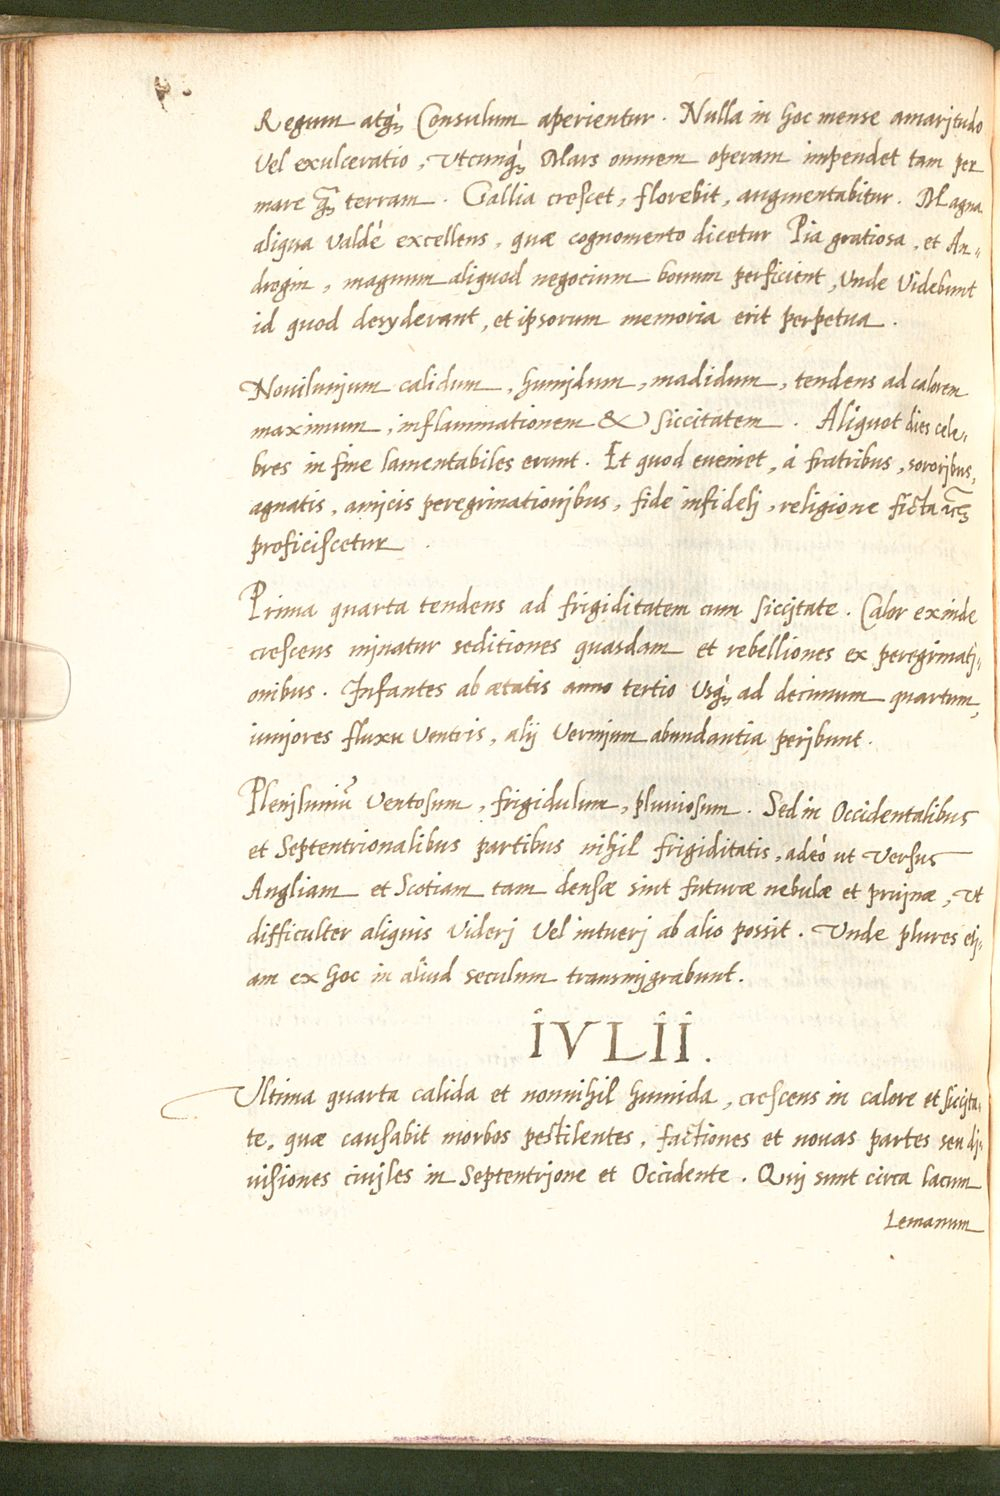 Regum atq̀ꝫ Consulum aperientur. Nulla in hoc mense amaritudo
vel exulceratio, vtcunq̀ꝫ Mars omnem operam impendet tam per
mare q̃ꝫ terram. Gallia crescet, florebit, augmentabitur. Magna
aliqua valdè excellens, quæ cognomento dicetur Pia gratiosa, et An„
drogin, magnum aliquod negocium bonum perficient, vnde videbunt
id quod desyderant, et ipsorum memoria erit perpetua.
Nouilunjum calidum, humjdum, madidum, tendens ad calorem
maximum, inflammationem & siccitatem. Aliquot dies cele„
bres in fine lamentabiles erunt. Et quod eueniet, à fratribus, sororjbus,
agnatis, amjcis peregrinationjbus, fide infidelj, religione ficta
proficiscetur.
Prima quarta tendens ad frigiditatem cum siccjtate. Calor exinde
crescens mjnatur seditiones quasdam et rebelliones ex peregrinatj„
onibus. Infantes ab ætatis anno tertio vsq̀ꝫ ad decimum quartum,
iunjores fluxu ventris, alij vermjum abundantia perjbunt.
Plenjluniũ ventosum, frigidulum, pluuiosum. Sed in Occidentalibus
et Septentrionalibus partibus nihil frigiditatis, adeò ut versus
Angliam et Scotiam tam densæ sint futuræ nebulæ et prujnæ, vt
difficulter aliquis viderj vel intuerj ab alio possit. Vnde plures etj„
am ex hoc in aliud seculum transmjgrabunt.
IVLII.
Vltima quarta calida et nonnihil humida, crescens in calore et siccjta„
te, quæ causabit morbos pestilentes, factiones et nouas partes seu dj„
uisiones ciujles in Septentrjone et Occidente. Quj sunt circa lacum
Lemanum